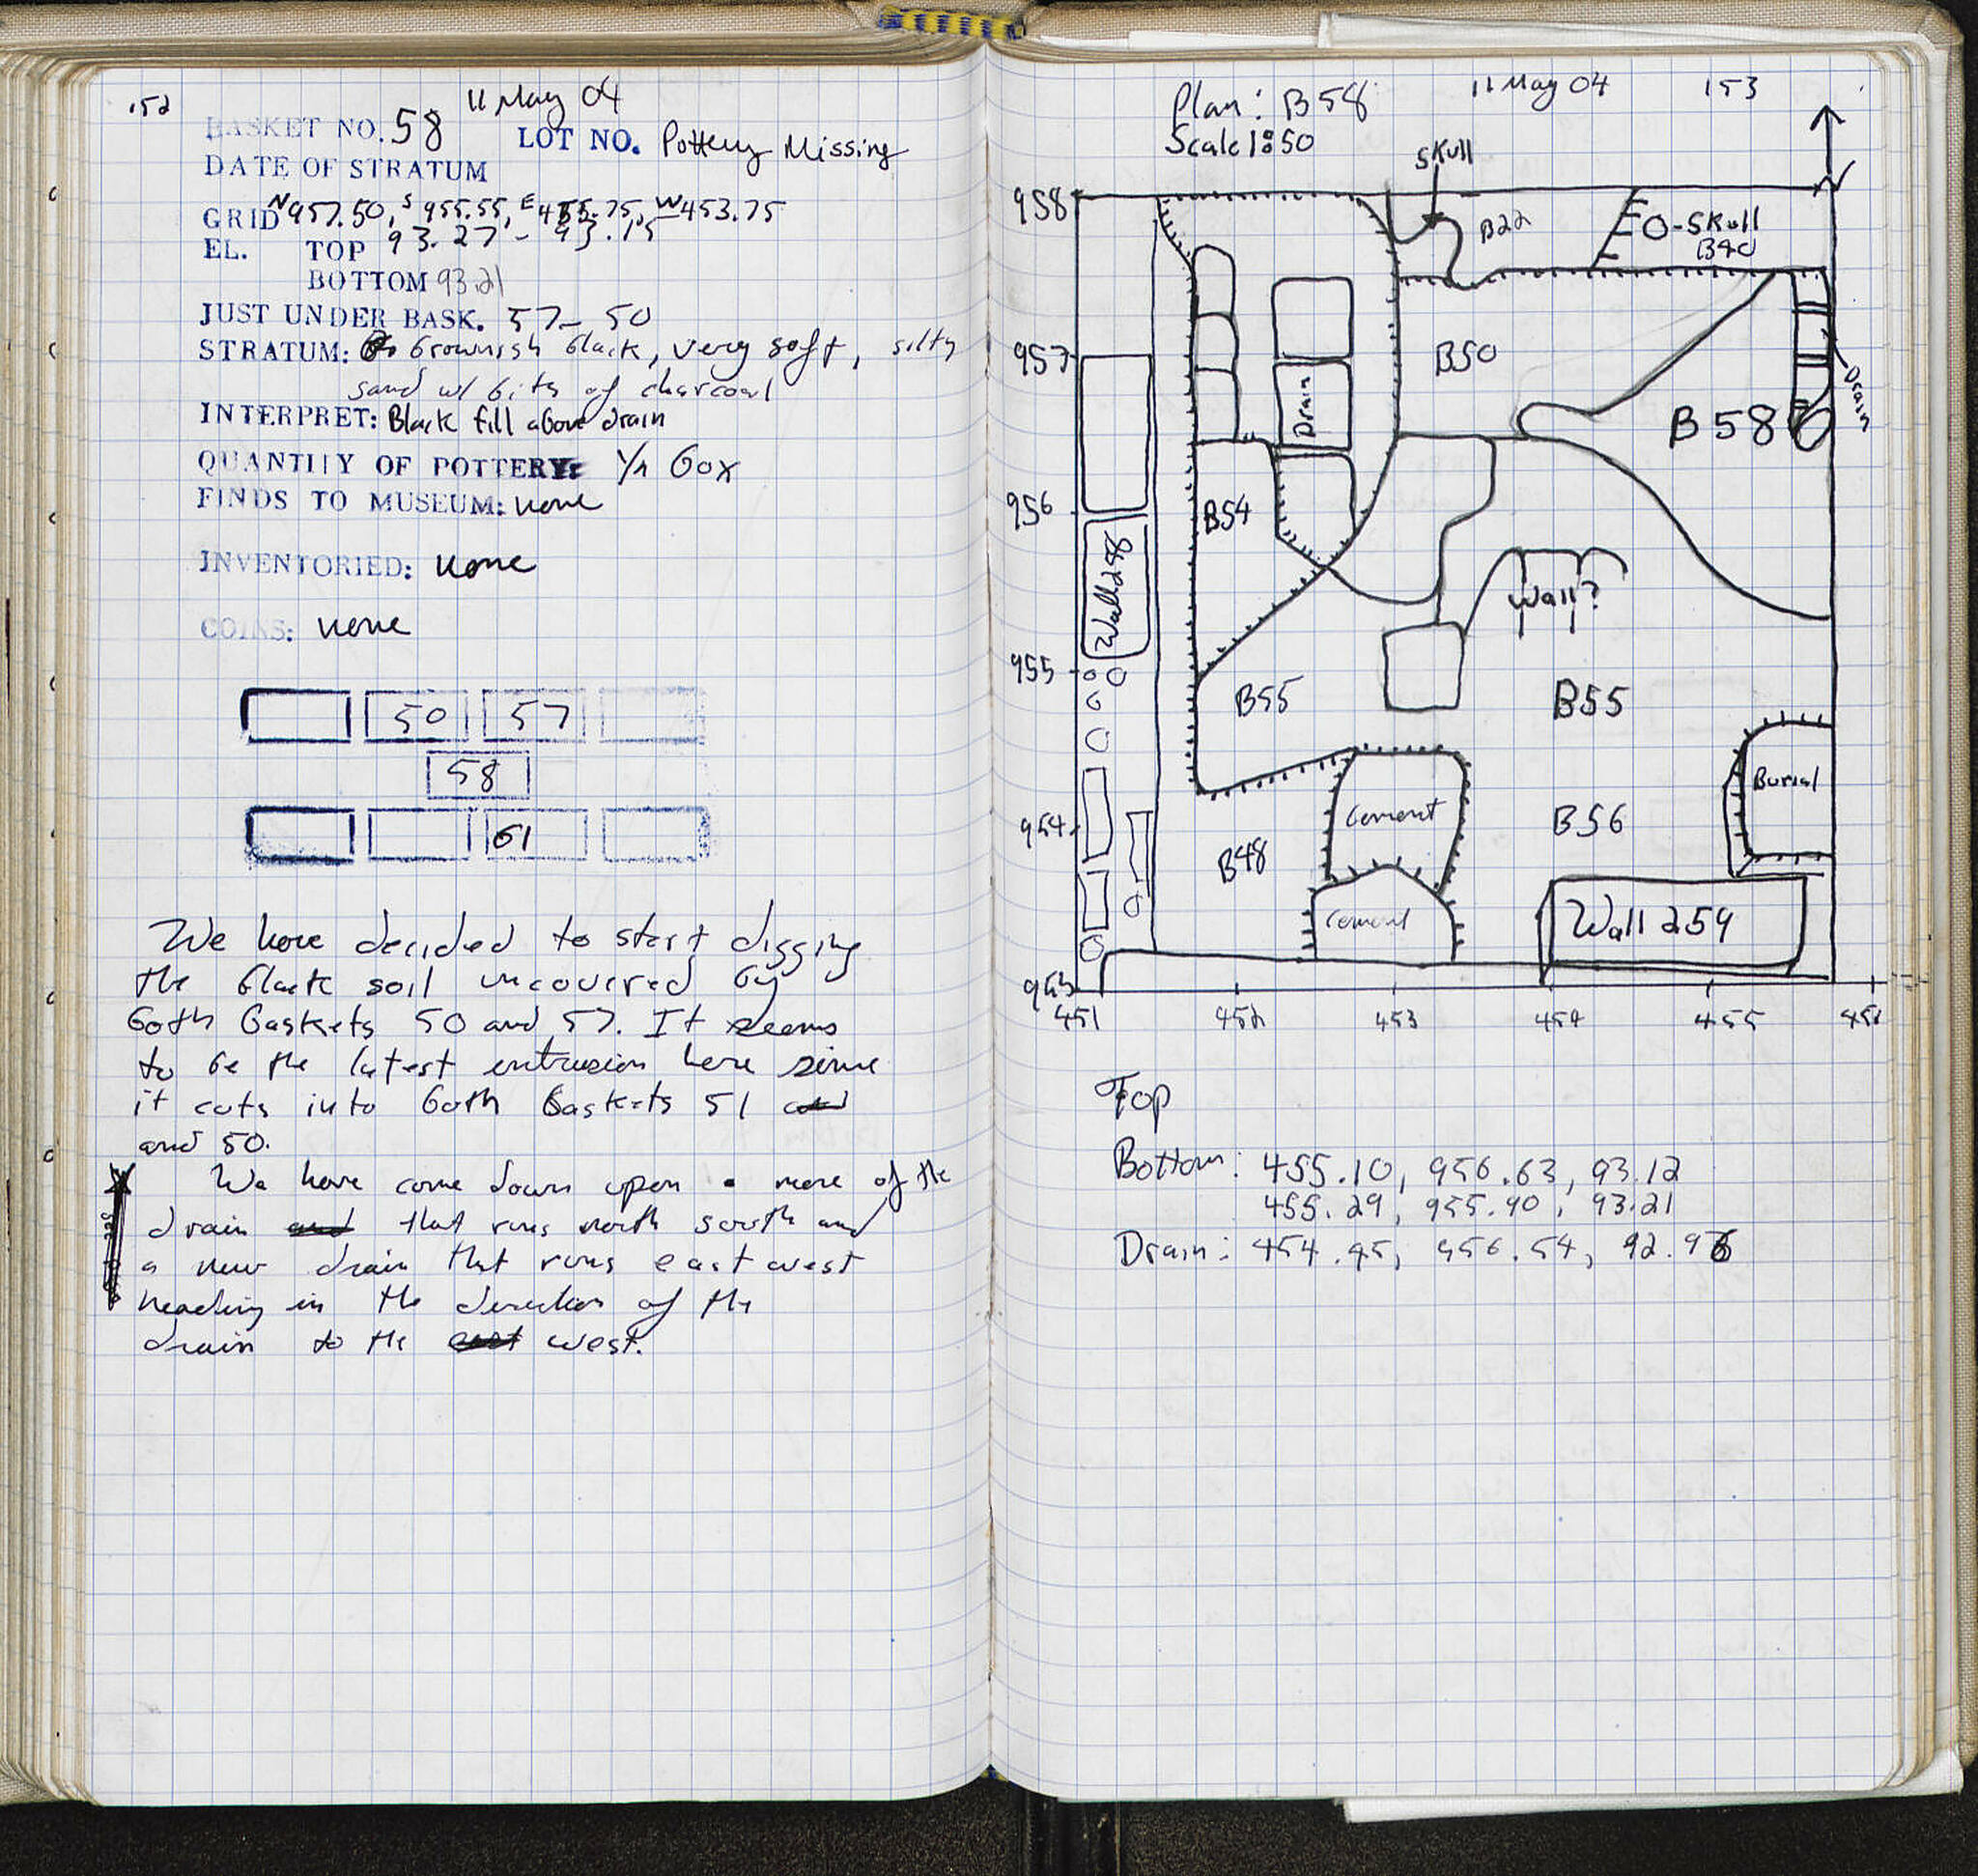 152
11 May 04
BASKET NO. 58 LOT NO. Pottery Missing
DATE OF STRATUM
GRID N957.50, S 955.55, E455.75, W453.75
EL. TOP 93.27 - 93.15
BOTTOM 93.21
JUST UNDER BASK. 57- 50
STRATUM: brownish black, very soft, silty
sand w/ bits of charcoal
INTERPRET: Black fill above drain
QUANTITY OF POTTERY: box
FINDS TO MUSEUM: none
INVENTORIED: none
COINS: none
50 57
58
61
We have decided to start digging
the black soil uncovered by
both baskets 50 and 57. It seems
to be the latest intrusion here since
it cuts into both baskets 51 and
and 50.
We have come down upon more of the
drain and that runs north south and
a new drain that runs east west
heading in the direction of the
drain to the east west.
11 May 04 153
Plan: B58
Scale 1:50
Skull
N
958
B22
O-Skull
B40
957
B50
Drain
Drain
B58
956
B54
Wall 248
Wall?
955
B55
B55
Burial
954
Cement
B56
B48
Cement
Wall 259
953
451 452 453 454 455 456
Top
Bottom: 455.10, 956.63, 93.12
455.29, 955.90, 93.21
Drain: 454.95, 956.54, 92.96